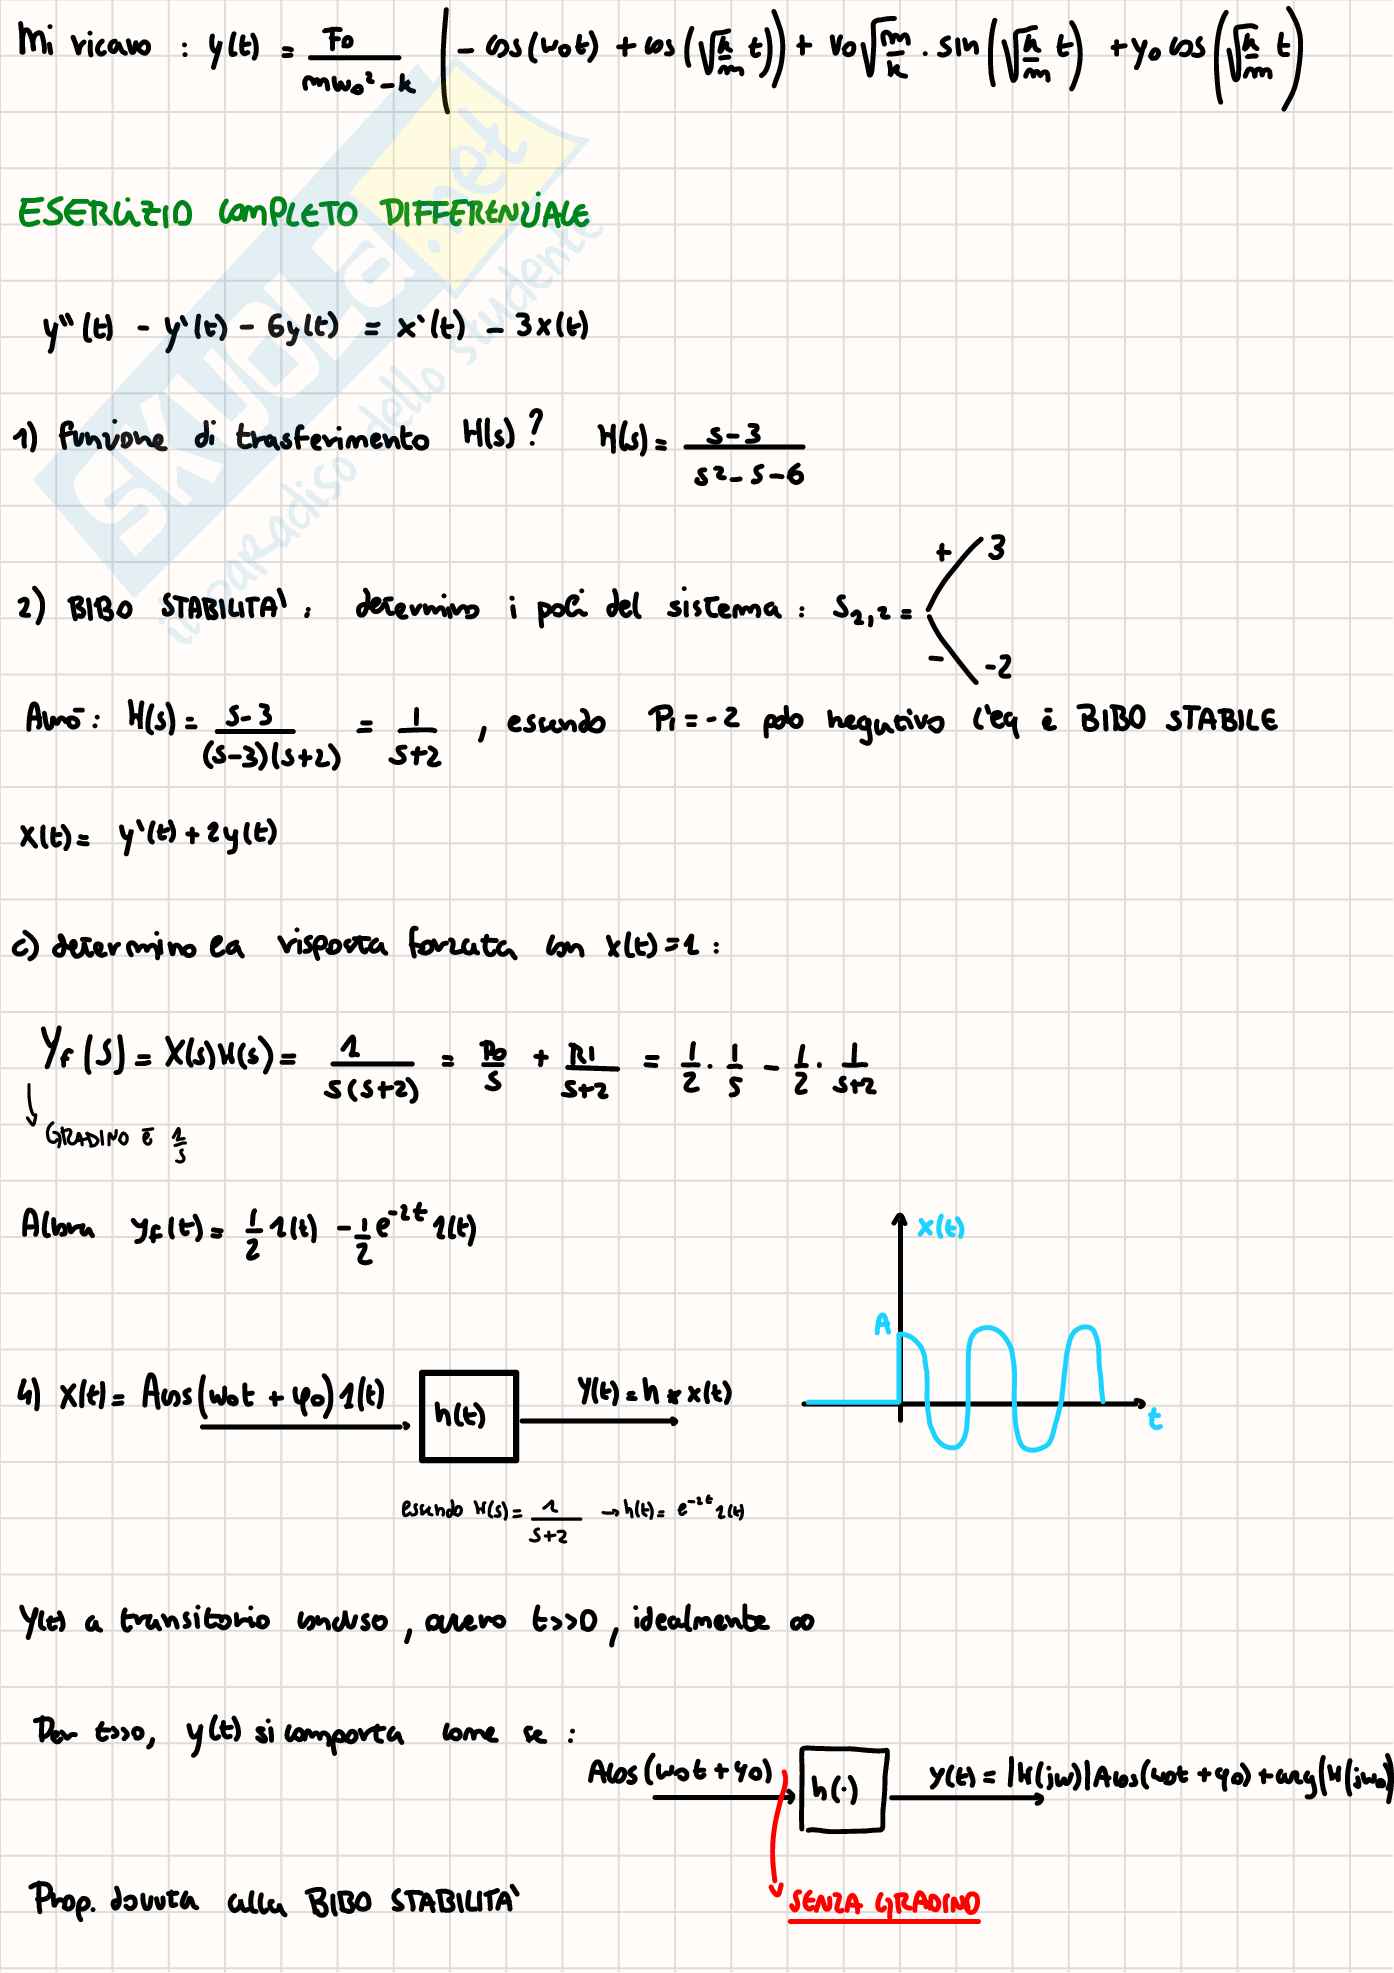 Mi ricavo : y(t) = F0/(mω0² - k) (- cos(ω0t) + cos(√(k/m) t)) + V0 √(m/k) · sin(√(k/m) t) + y0 cos(√(k/m) t)
ESERCIZIO COMPLETO DIFFERENZIALE
y''(t) - y'(t) - 6y(t) = x'(t) - 3x(t)
1) funzione di trasferimento H(s)? H(s) = (s-3)/(s²-s-6)
2) BIBO STABILITA' : determino i poli del sistema : S1,2 = + 3
- -2
Avrò: H(s) = (s-3)/((s-3)(s+2)) = 1/(s+2) , essendo P1 = -2 polo negativo l'eq è BIBO STABILE
x(t) = y'(t) + 2y(t)
c) determino la risposta forzata con x(t) = 1 :
Yf(s) = X(s)H(s) = 1/(s(s+2)) = R0/s + R1/(s+2) = 1/2 · 1/s - 1/2 · 1/(s+2)
GRADINO È 1/s
Allora yf(t) = 1/2 1(t) - 1/2 e^-2t 1(t)
x(t)
A
t
4) X(t) = Acos(ω0t + φ0) 1(t) h(t) Y(t) = h * x(t)
essendo H(s) = 1/(s+2) → h(t) = e^-2t 1(t)
Y(t) a transitorio concluso , ovvero t>>0 , idealmente ∞
Per t>>0, y(t) si comporta come se :
Acos(ω0t + φ0) h(·) y(t) = |H(jω)|Acos(ω0t + φ0) + arg(H(jω0)
Prop. dovuta alla BIBO STABILITA'
SENZA GRADINO
SKUOLA.net
il paradiso dello studente